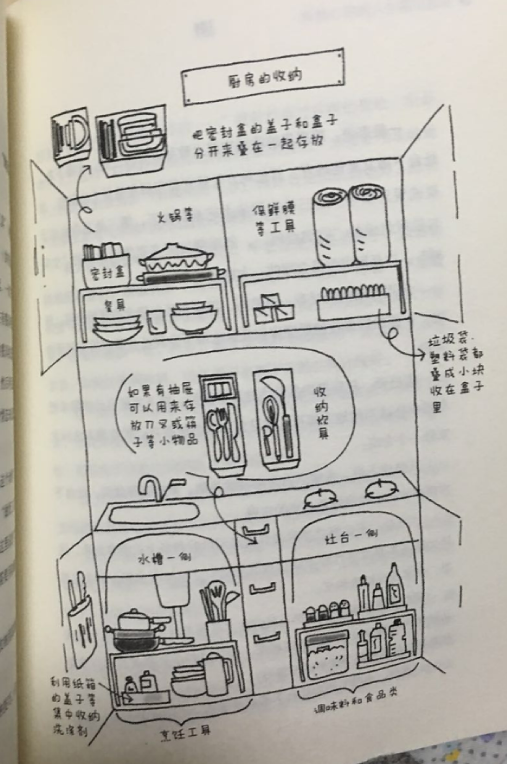 厨房的收纳
把密封盒的盖子和盒子
分开来叠在一起存放
火锅等
保鲜膜
等工具
密封盒
皇具
垃圾袋、
塑料袋都
叠成小块
收在盒子
里
如果有抽屉
可以用来存
放刀叉或筷
子等小物品
收纳炊具
水槽一侧
灶台一侧
利用纸箱
的盖子等
集中收纳
洗涤剂
烹饪工具
调味料和食品类